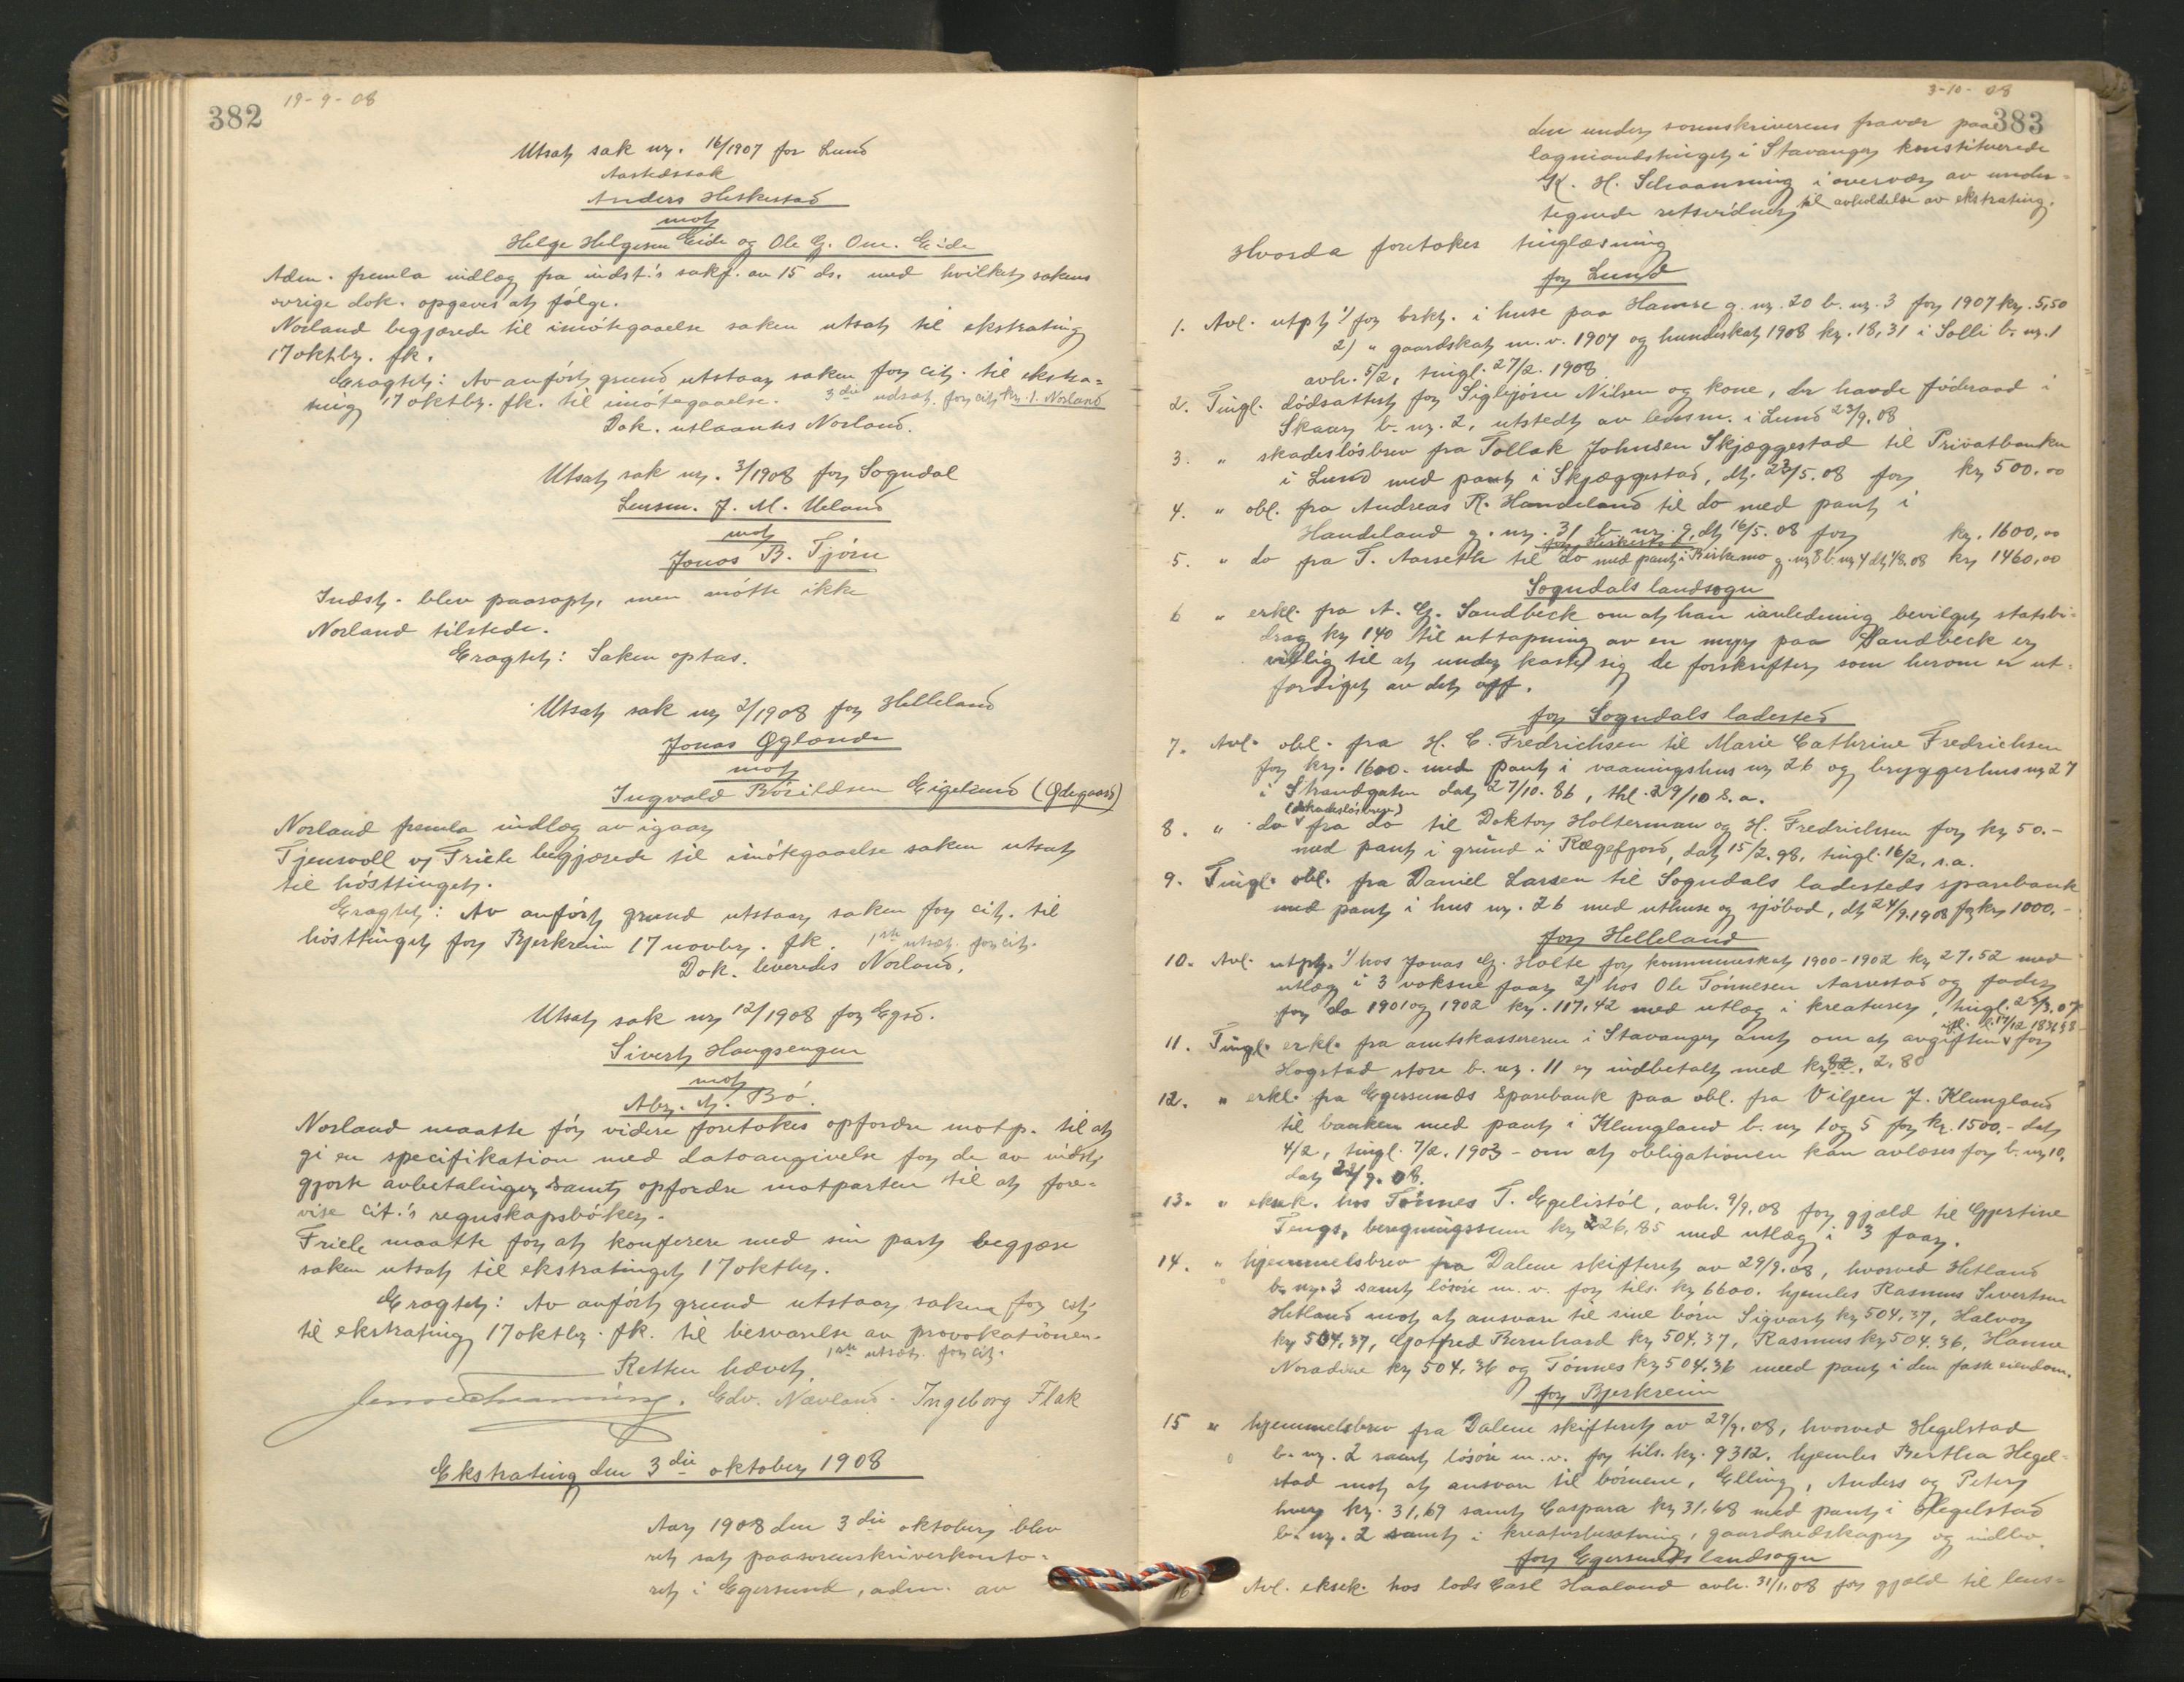 382
19-9-08
Utsat sak nr. 16/1907 for Lund
Aastedssak
Anders Heskestad
mot
Helge Helgesen Eide og Ole G. Om. Eide
Adm. fremla indlæg fra indst.'s sakf. av 15 ds. med hvilket sakens
øvrige dok. opgaves at følge.
Norland begjærede til imøtegaaelse saken utsat til ekstrating
17 oktbr. fk.
Eragtet: Av anført grund utstaar saken for cit. til ekstra-
ting 17 oktbr. fk. til imøtegaaelse. 3die udsæt. for cit. kr. 1. Norland
Dok. utlaantes Norland.
Utsat sak nr. 3/1908 for Sogndal
Lensm. J. M. Ueland
mot
Jonas B. Tjørn
Indst. blev paaropt, men møtte ikke
Norland tilstede.
Eragtet: Saken optas.
Utsat sak nr 2/1908 for Helleland
Jonas Øglænde
mot
Ingvald Bøildsen Eigeland (Ødegaard)
Norland fremla indlæg av igaar
Tjensvoll v/ Friele begjærede til imøtegaaelse saken utsat
til høsttinget.
Eragtet: Av anført grund utstaar saken for cit. til
høsttinget for Bjerkreim 17 novbr. fk. 1ste utsæt. for cit.
Dok. leveredes Norland.
Utsat sak nr 12/1908 for Egsd.
Sivert Haugsengen
mot
Abr. A. Bø.
Norland maatte før videre foretokes opfordre motp. til at
gi en specifikation med datoangivelse for de av indst.
gjorte avbetalinger samt opfordre motparten til at fore-
vise cit.'s regnskapsbøker.
Friele maatte for at konferere med sin part begjære
saken utsat til ekstratinget 17 oktbr.
Eragtet: Av anført grund utstaar saken for cit.
til ekstrating 17 oktbr. fk. til besvarelse av provokationen.
1ste utsæt. for cit.
Retten hævet
Edv. Nævland. Ingeborg Flak
Ekstrating den 3die oktober 1908
Aar 1908 den 3die oktober blev
ret sat paa sorenskriverkonto-
ret i Egersund, adm. av
3-10-08
383
den under sorenskriverens fravær paa
lagmandstinget i Stavanger konstituerede
K. H. Schaanning i overvær av under-
tegnede retsvidner til avholdelse av ekstrating.
Hvorda foretokes tinglæsning
for Lund
1. Avl. utpt 1/ for brkt. i huse paa Hamre g. nr. 20 b. nr. 3 for 1907 kr. 5,50
2) " gaardskat m. v. 1907 og hundeskat 1908 kr. 18,31 i Solli b. nr. 1
avh. 5/2, tingl. 27/2. 1908
2. Tingl. dødsattest for Sigbjørn Nilsen og kone, der havde føderaad i
Skaar b. nr. 2, utstedt av lensm. i Lund 23/9. 08
3. " skadesløsbrev fra Tollak Johnsen Skjæggestad til Privatbanken
i Lund med pant i Skjæggestad, dt. 23/5. 08 for kr 500.00
4. " obl. fra Andreas R. Handeland til do med pant i
Handeland g. nr. 31 b. nr. 9, dt 16/5. 08 for kr. 1600,00
for Heskestad
5. " do fra T. Aarseth til do med pant i Birkemo g. nr 8 b. nr 4 dt 1/8. 08 kr 1460,00
Sogndals landsogn
6 " erkl. fra A. G. Sandbeck om at han i anledning bevilget statsbi-
drag kr 140 til uttapning av en myr paa Sandbeck er
villig til at underkaste sig de forskrifter som herom er ut-
færdiget av det off.
for Sogndals ladested
7. Avl. obl. fra H. C. Fredrichsen til Marie Cathrine Fredrichsen
for kr. 1600. med pant i vaaningshus nr 26 og bryggerhus nr 27
i Strandgaten dat 27/10. 86, thl. 29/10 s. a.
(skadesløsbrev)
8. " do fra do til Doktor Holterman og H. Fredrichsen for kr 50.-
med pant i grund i Rægefjord, dat 15/2. 98, tingl. 16/2. s. a.
9. Tingl. obl. fra Daniel Larsen til Sogndals ladesteds sparebank
med pant i hus nr. 26 med uthuse og sjøbod, dt 24/9. 1908 for kr 1000.-
for Helleland
10. Avl. utpt. 1/ hos Jonas G. Holte for kommuneskat 1900-1902 kr 27,52 med
utlæg i 3 voksne faar 2/ hos Ole Tønnesen Aarrestad og fader
for do 1901 og 1902 kr. 117,42 med utlæg i kreaturer, tingl. 23/3. 07
11. Tingl. erkl. fra amtskassereren i Stavanger amt om at avgiften ifl. l. 17/12 1836 § 8 for
Hogstad store b. nr. 11 er indbetalt med kr 2,80
12. " erkl. fra Egersunds Sparebank paa obl. fra Viljen J. Klungland
til banken med pant i Klungland b. nr 1 og 5 for kr. 1500.- dat
4/2, tingl. 7/2. 1903 - om at obligationen kan avlæses for b. nr 10,
dat 23/9. 08.
13. " eksek. hos Tønnes T. Egelistøl, avh. 9/9. 08 for gjæld til Gjertine
Tengs, beregningssum kr 226,85 med utlæg i 3 faar.
14. " hjemmelsbrev fra Dalene skifteret av 29/9. 08, hvorved Hetland
b. nr. 3 samt løsøre m. v. for tils. kr 6600. hjemles Rasmus Sivertsen
Hetland mot at ansvare til sine børn Sigvart kr 504.37, Halvor
kr 504.37, Gotfred Bernhard kr 504.37, Rasmus kr 504.36, Hanne
Noradine kr 504.36 og Tønnes kr 504.36 med pant i den faste eiendom.
for Bjerkreim
15 " hjemmelsbrev fra Dalene skifteret av 29/9. 08, hvorved Hegelstad
b. nr. 2 samt løsøre m. v. for tils. kr. 9312. hjemles Berthea Hegel-
stad mot at ansvare til børnene, Elling, Anders og Peter
hver kr. 31,69 samt Caspara kr 31.68 med pant i Hegelstad
b. nr. 2 samt i kreaturbesætning, gaardsredskaper og indbo.
for Egersunds landsogn
16 Avl. eksek. hos lods Carl Haaland avh. 31/1. 08 for gjæld til lens-